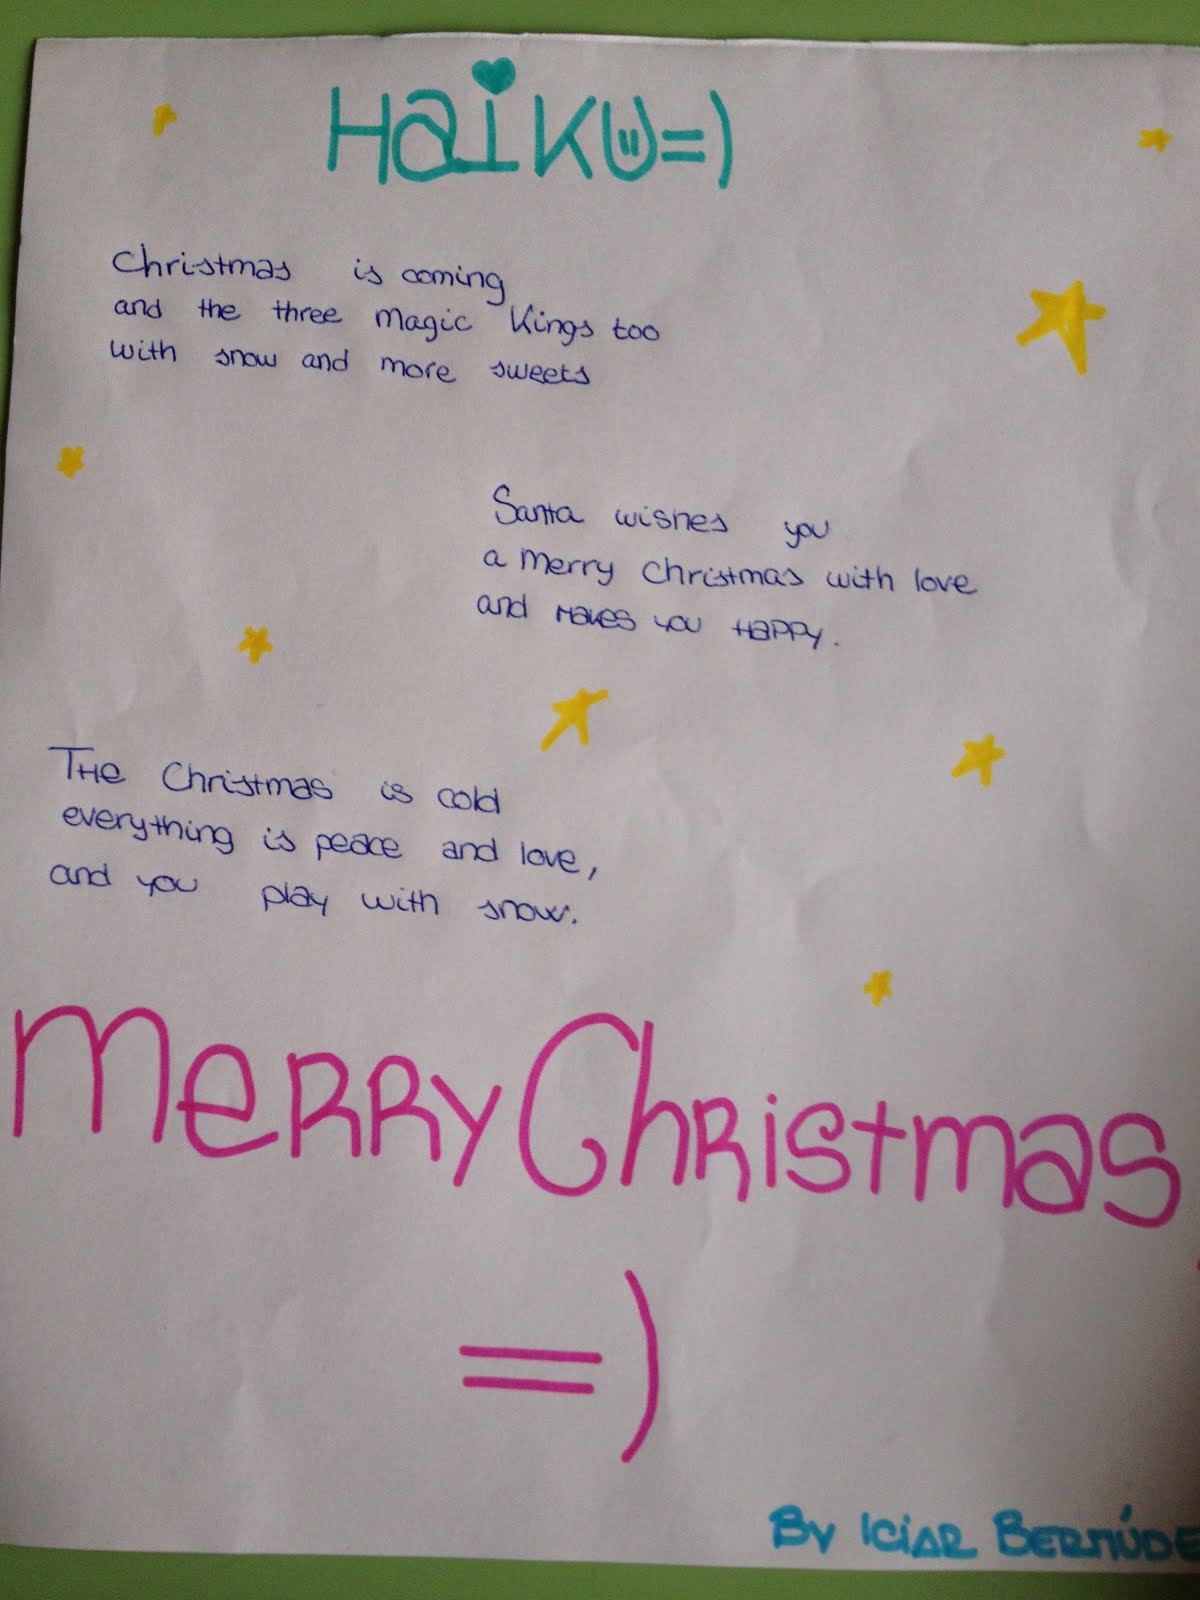 HaiKU=)
Christmas is coming
and the three magic Kings too
with snow and more sweets
Santa wishes you
a merry Christmas with love
and makes you HAPPY.
THe Christmas is cold
everything is peace and love,
and you play with snow.
MeRRY ChRistmas
=)
By ICIAR